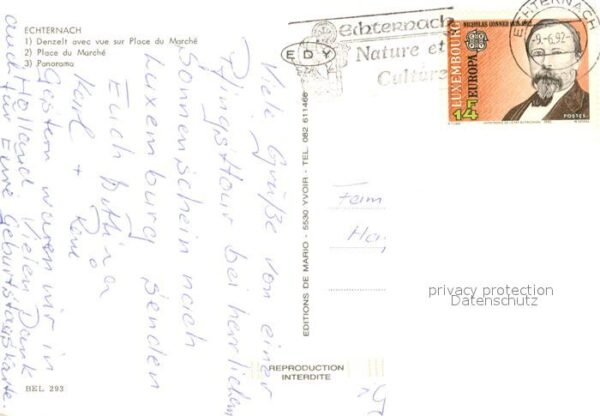 ECHTERNACH
1) Denzelt avec vue sur Place du Marché
2) Place du Marché
3) Panorama
Viele Grüße von einer
Pfingsttour bei herrlichem
Sonnenschein nach
Luxemburg senden
Euch
Karl +
Gestern waren wir in
Holland Vielen Dank
auch für Eure Geburtstagskarte.
BEL 293
EDY
EDITIONS DE MARIO - 5530 YVOIR - TEL. 082 611466
REPRODUCTION
INTERDITE
echternach
Nature et
Culture
ECHTERNACH
-9.-6.92-
NICOLAS GONNER 1835-1892
LUXEMBOURG
EUROPA
14F
POSTES
Fam
Ha
privacy protection
Datenschutz